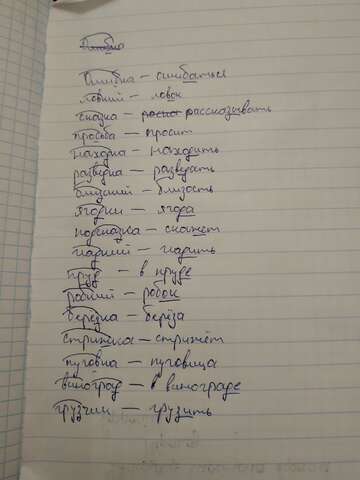 Ошибка — ошибаться
ловкий — ловок
сказка — рассказывать
просьба — просит
находка — находить
разведка — разведать
близкий — близость
ягодки — ягода
подсказка — скажет
гладкий — гладить
пруд — в пруде
робкий — робок
берёзка — берёза
стрижка — стрижёт
пуговка — пуговица
виноград — в винограде
грузчик — грузить